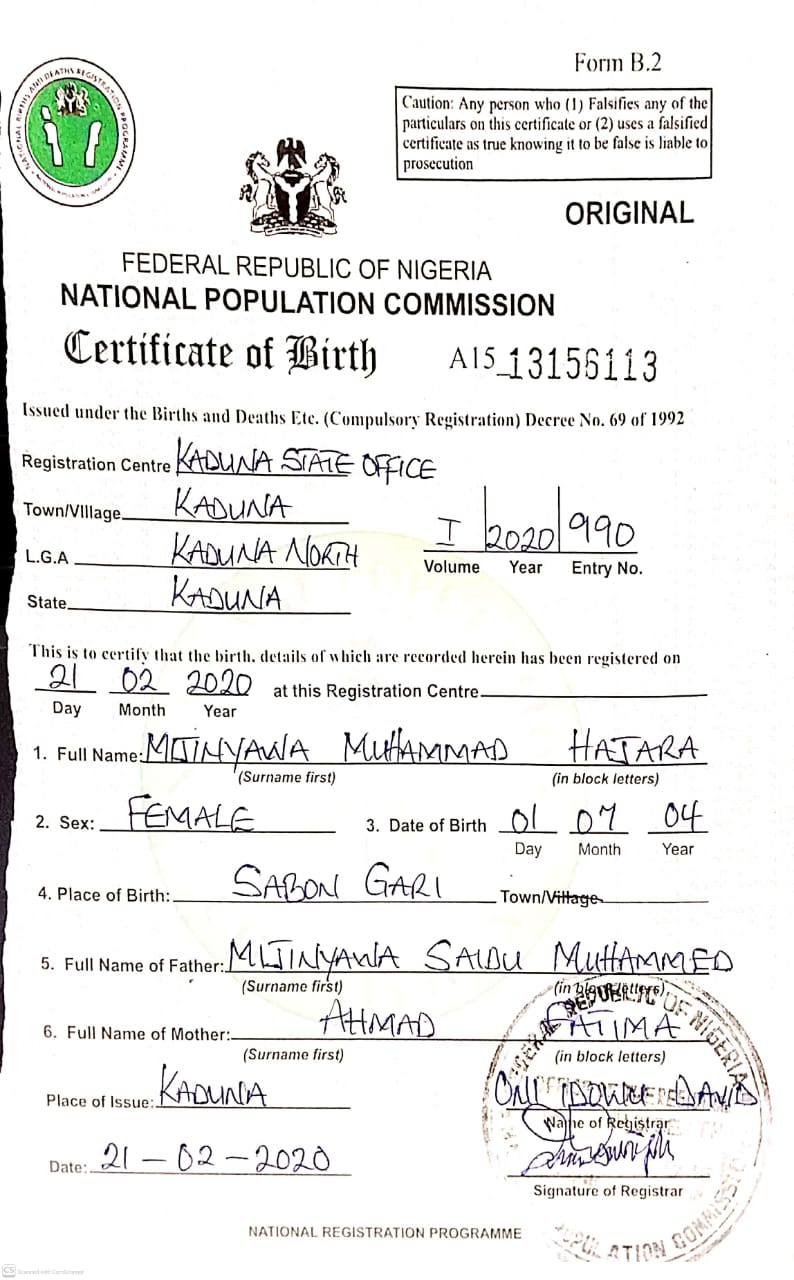 Form B.2
NATIONAL BIRTHS AND DEATHS REGISTRATION PROGRAMME
Caution: Any person who (1) Falsifies any of the
particulars on this certificate or (2) uses a falsified
certificate as true knowing it to be false is liable to
prosecution
ORIGINAL
FEDERAL REPUBLIC OF NIGERIA
NATIONAL POPULATION COMMISSION
Certificate of Birth A15 13156113
Issued under the Births and Deaths Etc. (Compulsory Registration) Decree No. 69 of 1992
Registration Centre KADUNA STATE OFFICE
Town/Village KADUNA
I 2020 990
L.G.A KADUNA NORTH
Volume Year Entry No.
State KADUNA
This is to certify that the birth, details of which are recorded herein has been registered on
21 02 2020 at this Registration Centre
Day Month Year
1. Full Name: MIJINYAWA MUHAMMAD HAJARA
(Surname first) (in block letters)
2. Sex: FEMALE 3. Date of Birth 01 07 04
Day Month Year
4. Place of Birth: SABON GARI Town/Village
5. Full Name of Father: MIJINYAWA SAIDU MUHAMMED
(Surname first) (in block letters)
6. Full Name of Mother: AHMAD FATIMA
(Surname first) (in block letters)
Place of Issue: KADUNA ONI IDOWU DAVID
Name of Registrar
Date: 21-02-2020
Signature of Registrar
NATIONAL REGISTRATION PROGRAMME
FEDERAL REPUBLIC OF NIGERIA
POPULATION COMMISSION
CS Scanned with CamScanner